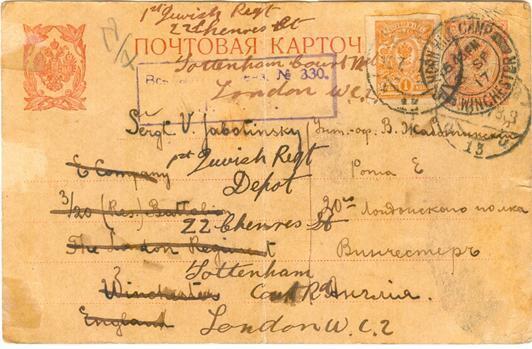 1st Jewish Regt
22 Chenies St
ПОЧТОВАЯ КАРТОЧ
Tottenham Court Rd
№ 330.
London W.C.2
CAMP
WINCHESTER
17
Sergt V. Jabotinsky
Унт.-оф. В. Жаботинский
1st Jewish Regt
E Company
Рота Е
Depot
3/20 (Res) Battalion
20го Лондонского полка
22 Chenies St
The London Regiment
Винчестеръ
Tottenham
Winchester
Court Rd
Англия.
England
London W.C.2
13